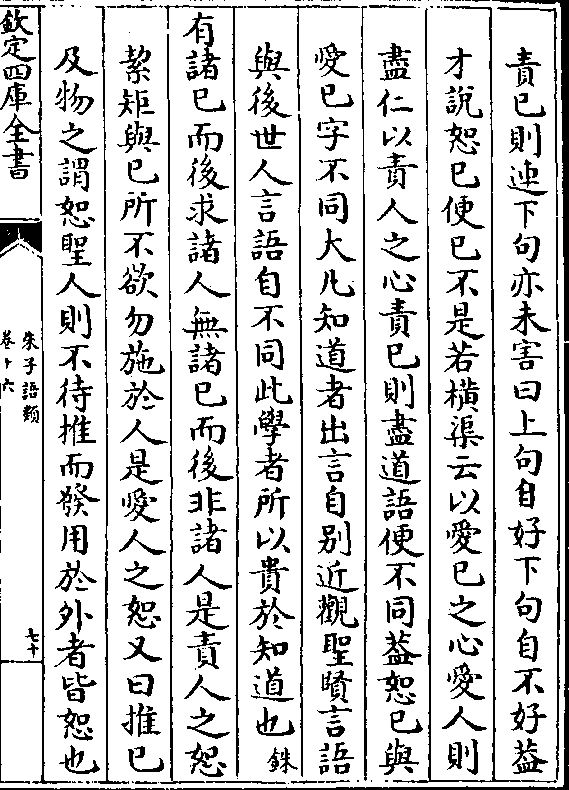 責已則連下句亦未害曰上句自好下句自不好葢
才說恕已便已不是若橫渠云以愛已之心愛人則
盡仁以責人之心責已則盡道語便不同葢恕已與
愛已字不同大凡知道者出言自别近觀聖賢言語
與後世人言語自不同此學者所以貴於知道也銖
有諸已而後求諸人無諸已而後非諸人是責人之恕
絜矩與已所不欲勿施於人是愛人之恕又曰推已
及物之謂恕聖人則不待推而發用於外者皆恕也
欽定四庫全書
朱子語類
卷十六
七十